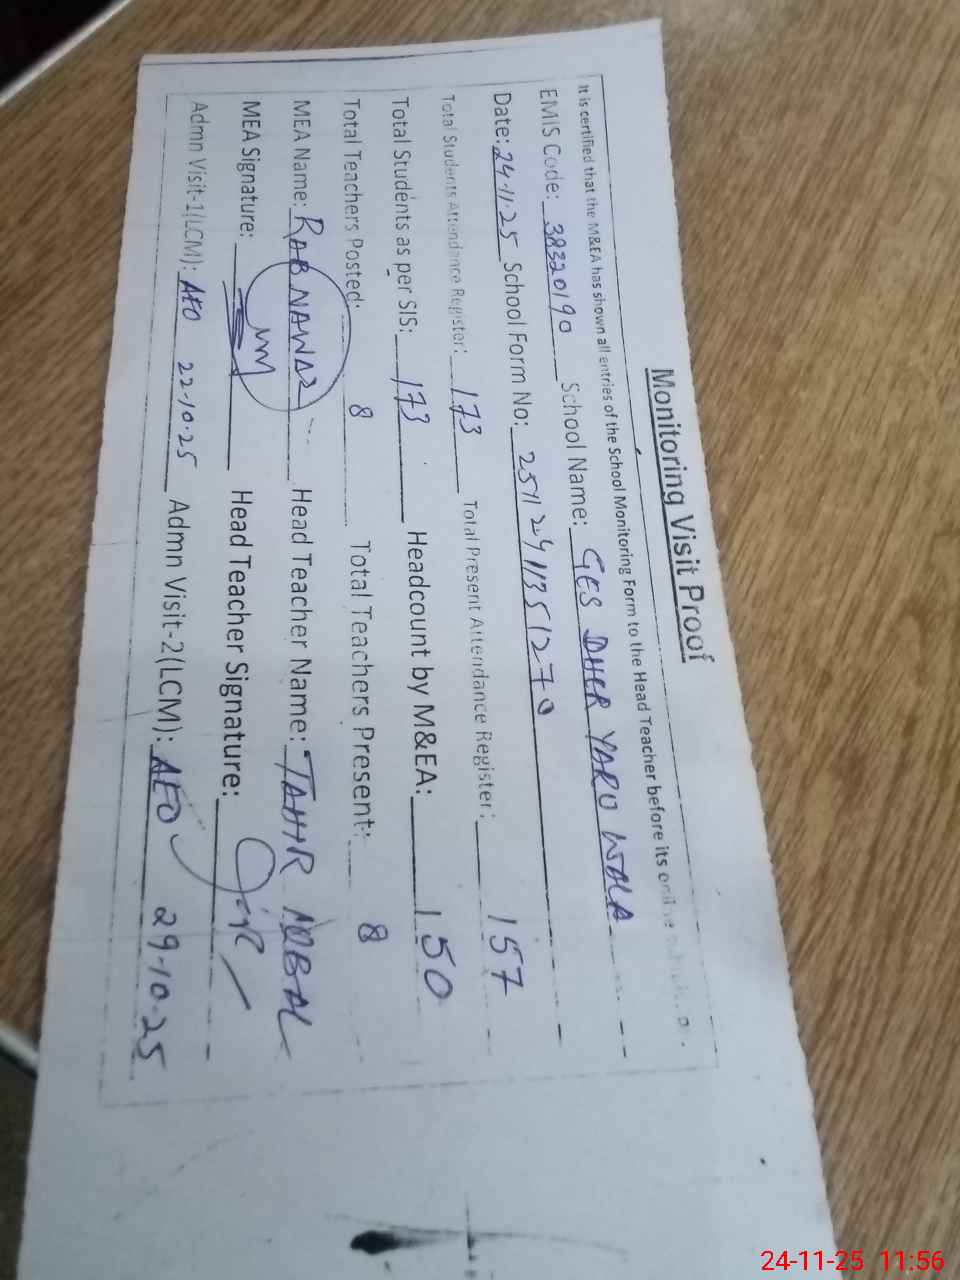 Monitoring Visit Proof
It is certified that the M&EA has shown all entries of the School Monitoring Form to the Head Teacher before its
EMIS Code: 38320190 School Name: GES DHER YARU WALA
Date: 24-11-25 School Form No: 25112411351270
Total Students Attendance Register: 173 Total Present Attendance Register: 157
Total Students as per SIS: 173 Headcount by M&EA: 150
Total Teachers Posted: 8 Total Teachers Present: 8
MEA Name: RAB NAWAZ Head Teacher Name: TAHIR IQBAL
MEA Signature: Head Teacher Signature:
Admn Visit-1(LCM): AEO 22-10-25 Admn Visit-2(LCM): AEO 29-10-25
24-11-25 11:56